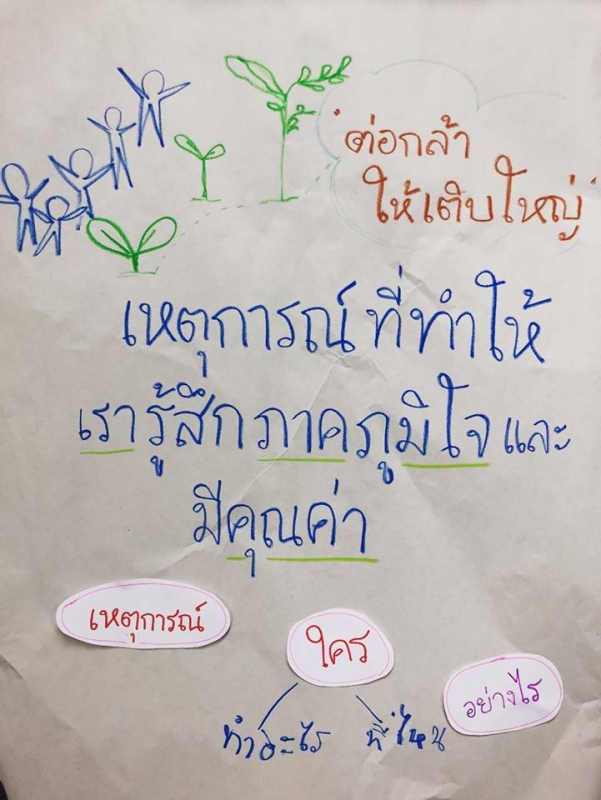 "ต่อกล้า
ให้เติบใหญ่"
เหตุการณ์ ที่ทำให้
เรารู้สึกภาคภูมิใจ และ
มีคุณค่า
เหตุการณ์
ใคร
อย่างไร
ทำอะไร ที่ไหน